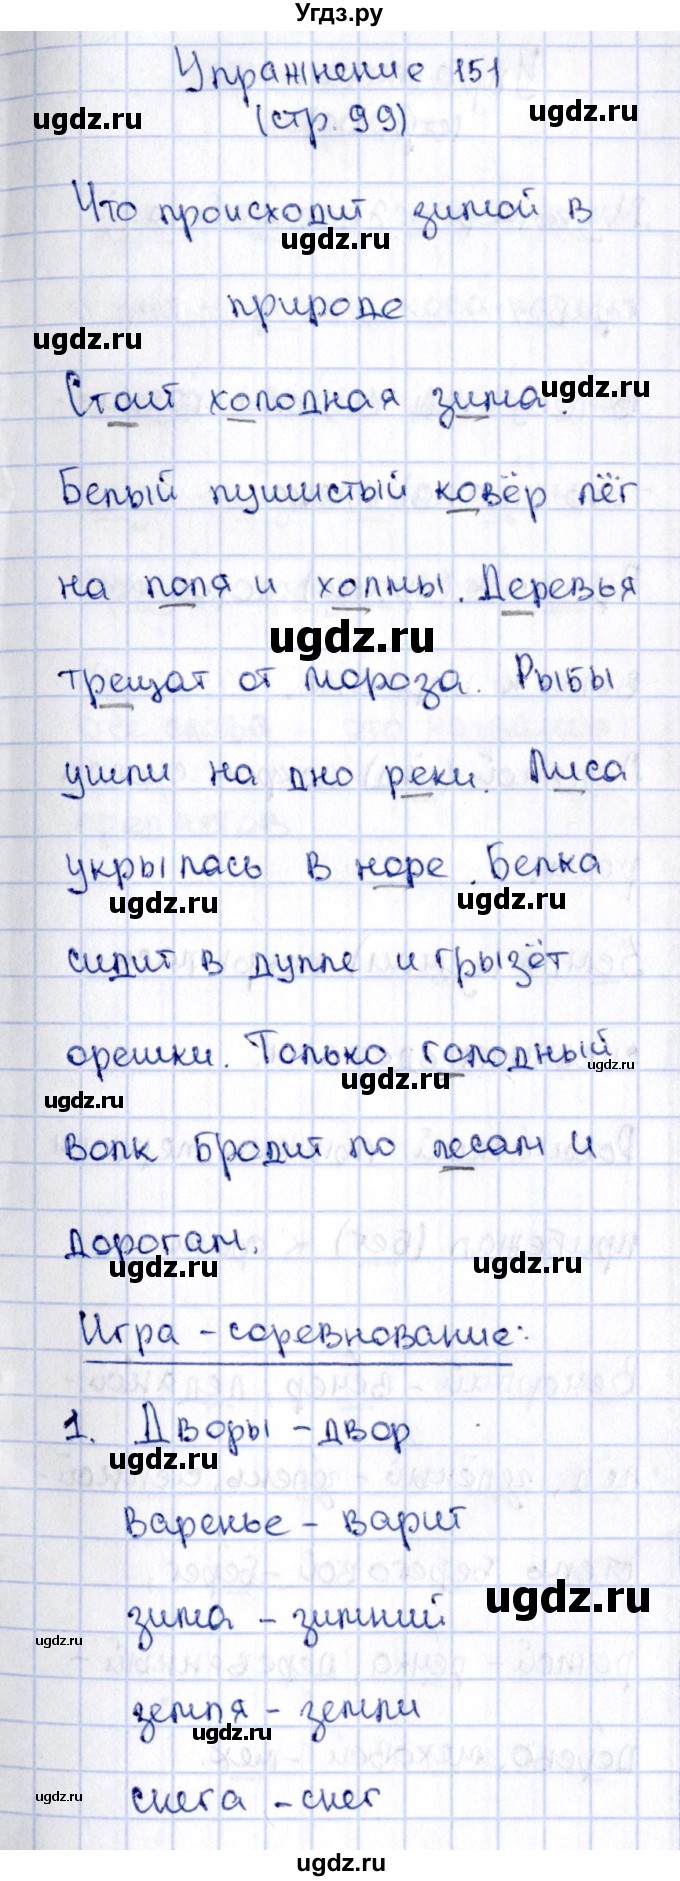 Угдз.ру
Упражнение 151
ugdz.ru
ugdz.ru
(стр. 99)
Что происходит зимой в
ugdz.ru
природе
ugdz.ru
Стоит холодная зима.
ugdz.ru
Белый пушистый ковёр лёг
на поля и холмы. Деревья
ugdz.ru
трещат от мороза. Рыбы
ушли на дно реки. Лиса
укрылась в норе. Белка
ugdz.ru
ugdz.ru
сидит в дупле и грызёт
орешки. Только голодный
ugdz.ru
ugdz.ru
ugdz.ru
волк бродит по лесам и
дорогам.
ugdz.ru
ugdz.ru
Игра - соревнование:
1. Дворы - двор
ugdz.ru
варенье - варит
ugdz.ru
зима - зимний
ugdz.ru
земля - земли
ugdz.ru
снега - снег
ugdz.ru
ugdz.ru